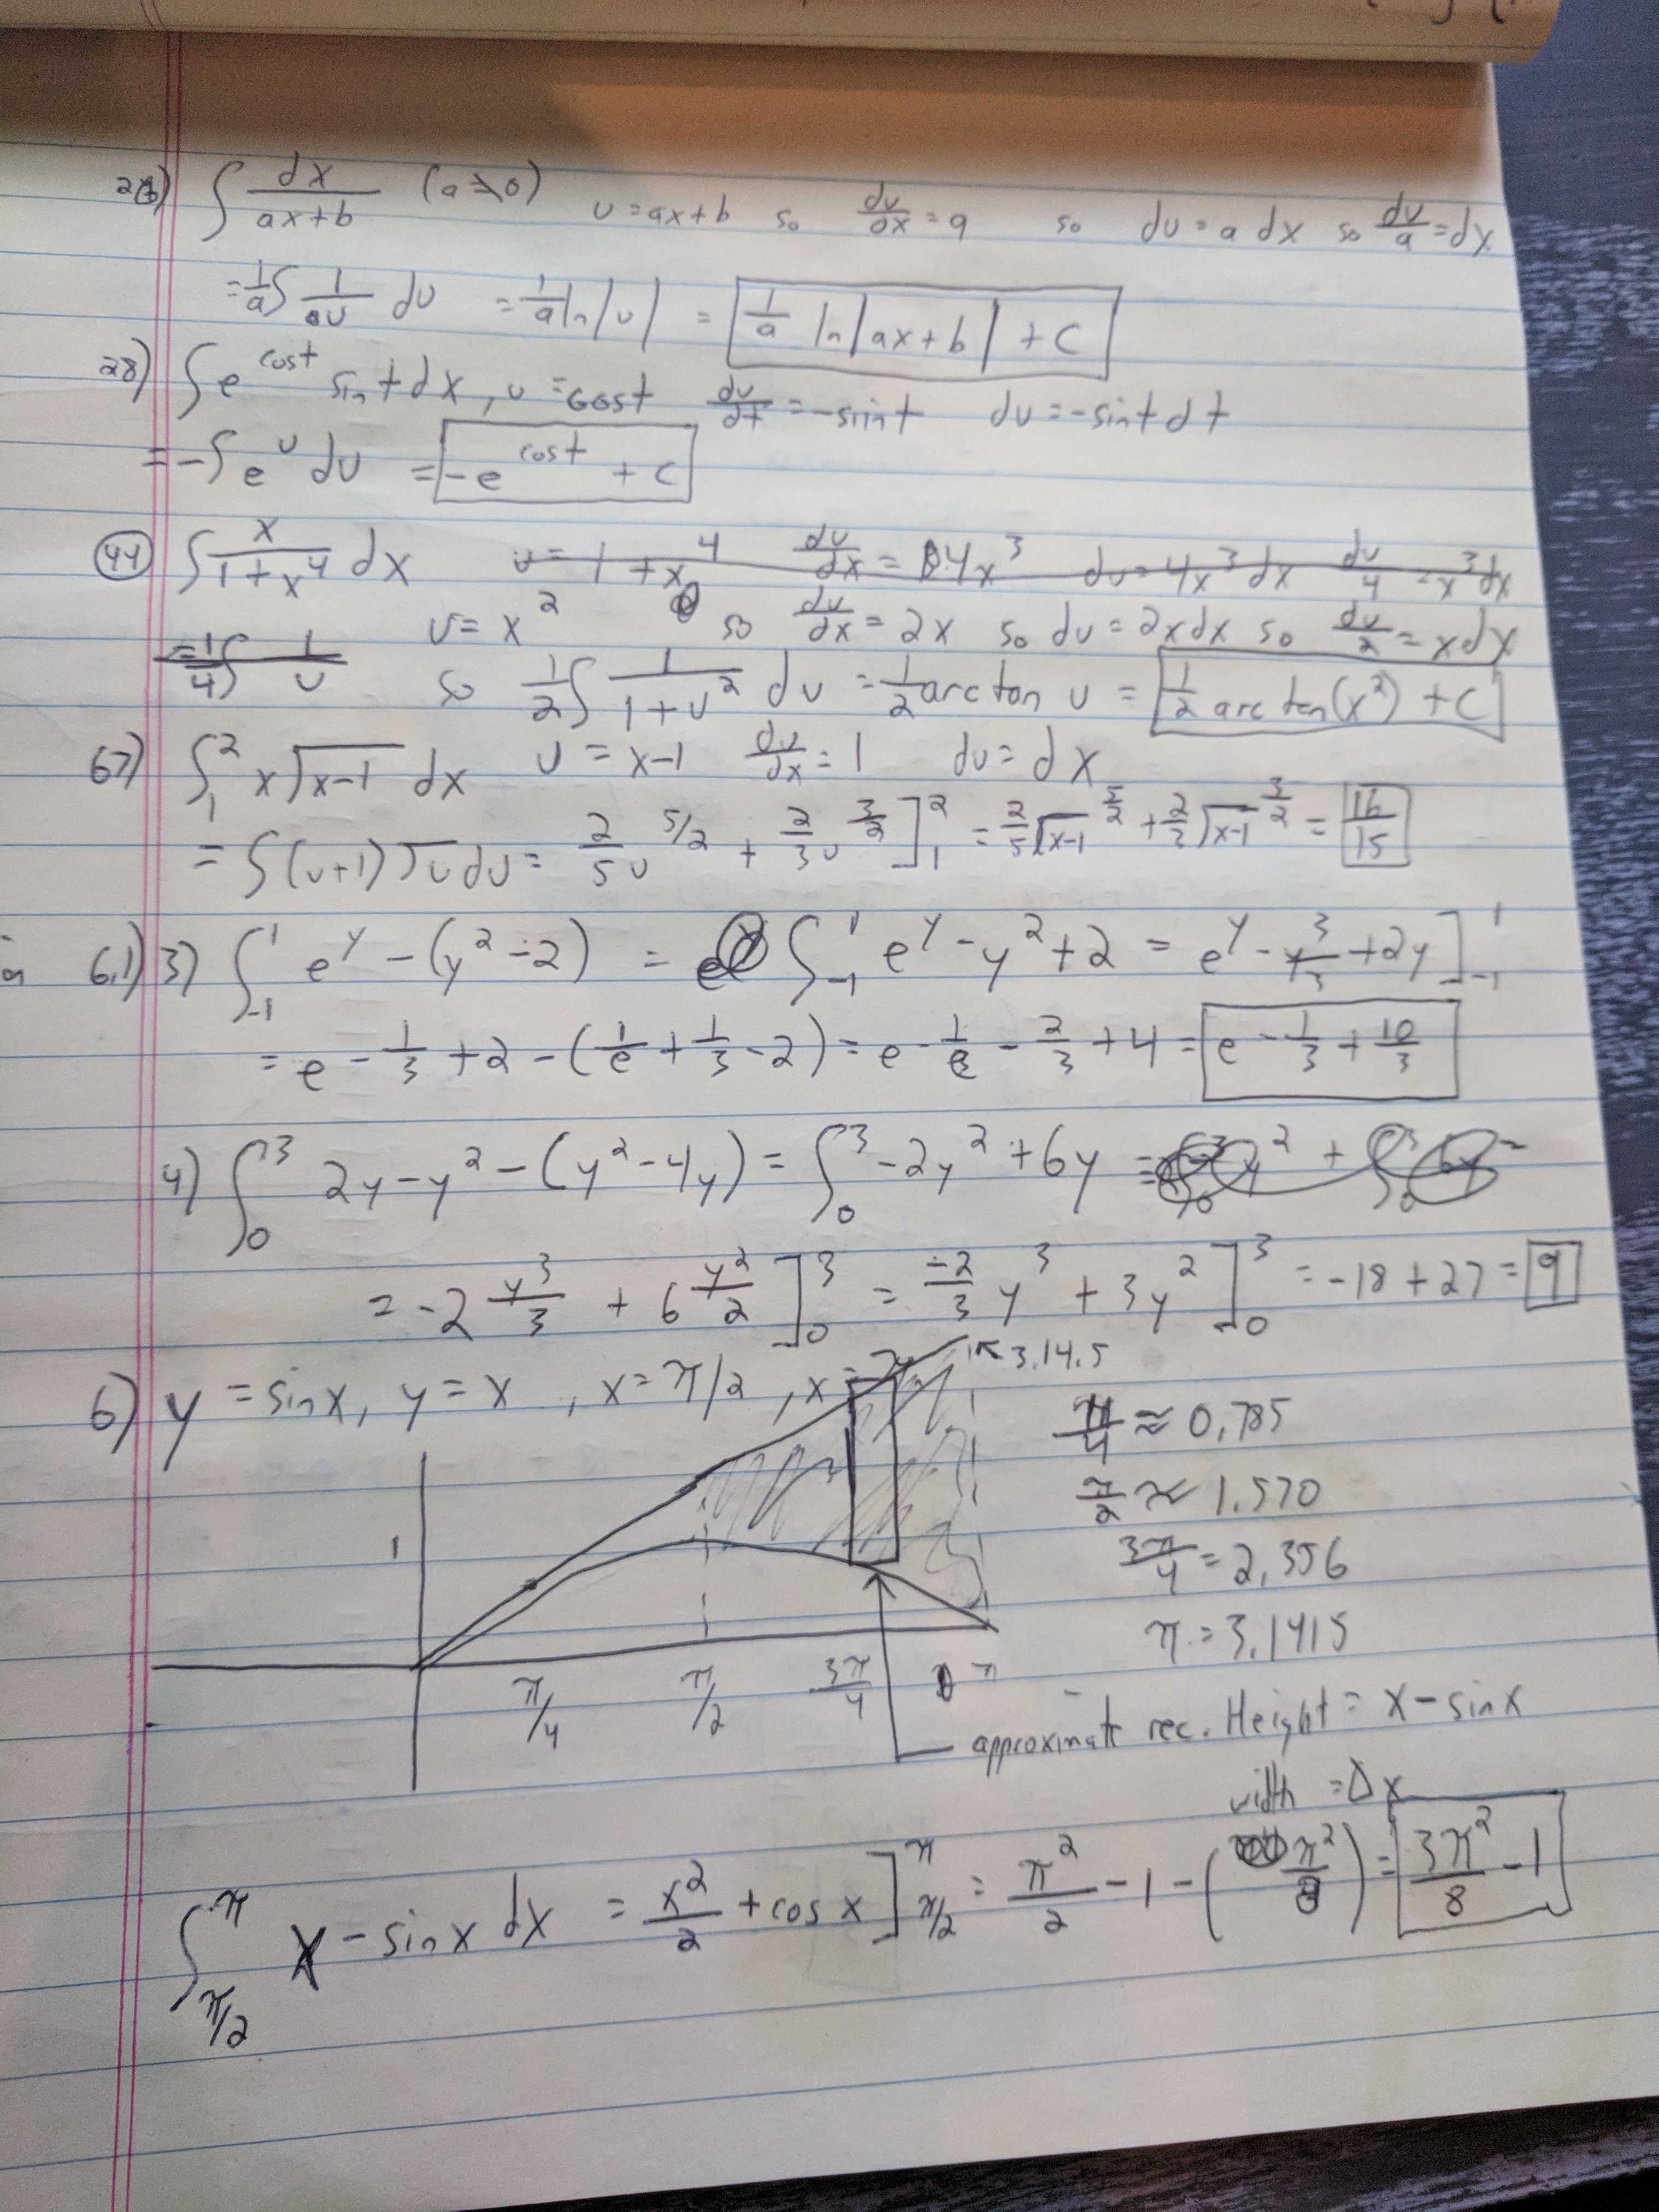 26) ∫ dx/(ax+b) (a≠0) u=ax+b so du/dx=a so du=a dx so du/a=dx
=1/a∫ 1/u du =1/a ln|u| = 1/a ln|ax+b| +C
28) ∫e^cost sint dx, u=cost du/dt=-sint du=-sint dt
=-∫e^u du =-e^cost +C
44) ∫ x/(1+x^4) dx u=1+x^4 du/dx=4x^3 du=4x^3 dx du/4=x^3dx
u=x^2 so du/dx=2x so du=2xdx so du/2=xdx
=1/4∫ 1/u so 1/2∫ 1/(1+u^2) du =1/2 arctan u = 1/2 arctan(x^2) +C
67) ∫_1^2 x√(x-1) dx u=x-1 du/dx=1 du=dx
=∫(u+1)√u du= 2/5 u^5/2 + 2/3 u^3/2 ]_1^2 = 2/5 √(x-1)^5/2 + 2/3 √(x-1)^3/2 = 16/15
6.1) 3) ∫_-1^1 e^y-(y^2-2) = ∫_-1^1 e^y-y^2+2 = e^y-y^3/3+2y ]_-1^1
= e-1/3+2-(1/e+1/3-2)=e-1/e-2/3+4= e-1/3+10/3
4) ∫_0^3 2y-y^2-(y^2-4y)=∫_0^3 -2y^2+6y =
=-2 y^3/3 + 6 y^2/2 ]_0^3 = -2/3 y^3+3y^2 ]_0^3 =-18+27=9
6) y=sinx, y=x, x=π/2, x=π 3.14.5
π/4≈0.785
π/2≈1.570
1
3π/4=2.356
π=3.1415
π/4 π/2 3π/4 π
approximate rec. Height=x-sinx
width=Δx
∫_π/2^π x-sinx dx = x^2/2+cosx ]_π/2^π = π^2/2-1-(π^2/8)= 3π^2/8-1